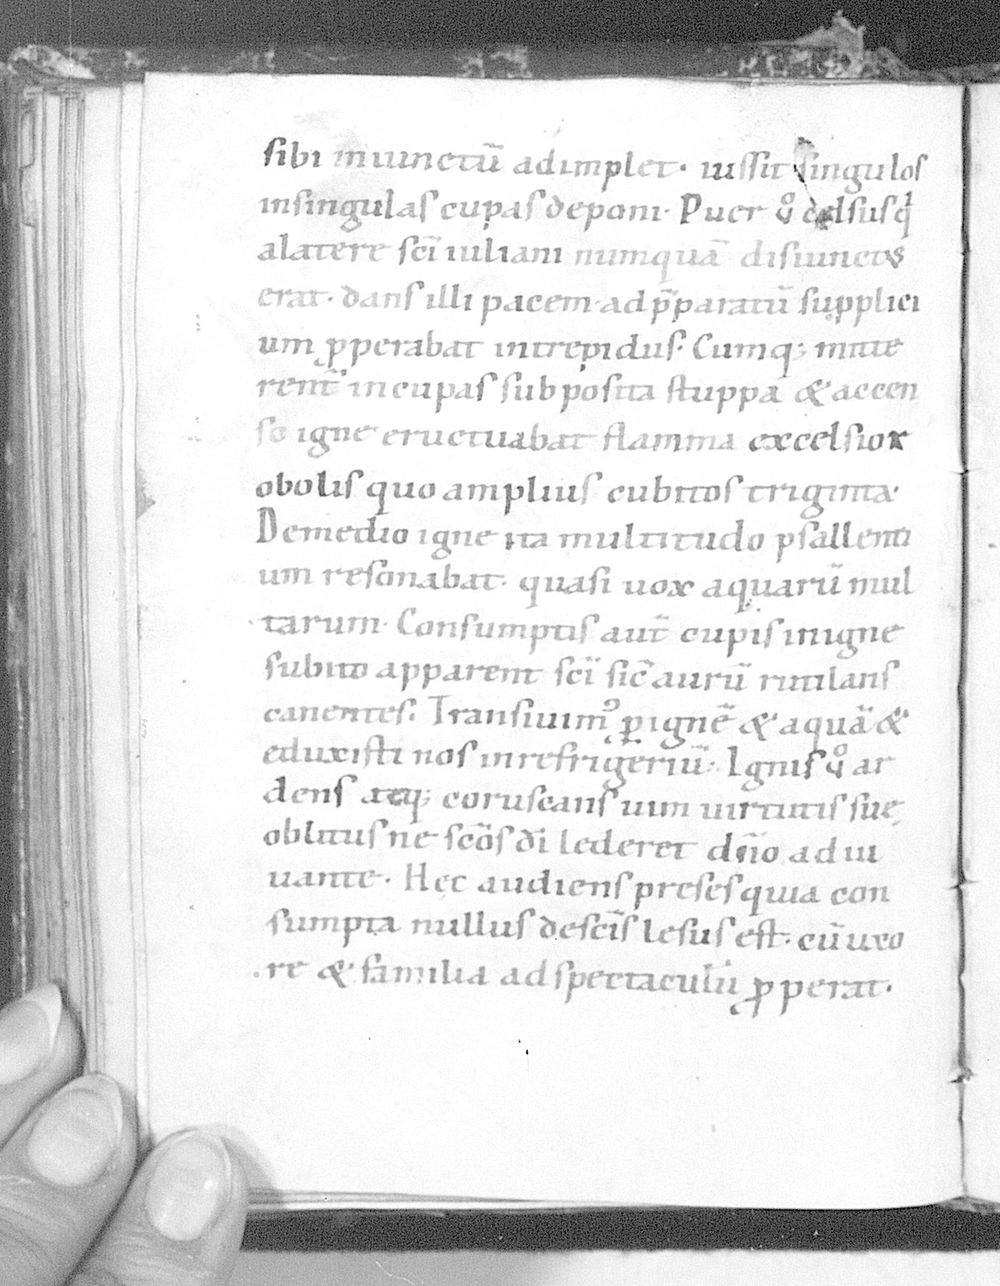 sibi iniunctū adimplet· iussit singulos
insingulas cupas deponi· Puer ůo celsus q̇
alatere sc̄i iuliani numquā disiunctus
erat· dans illi pacem· ad p̄paratū supplici
um ꝓperabat intrepidus· Cumq; mitte
rent̄ incupas subposita stuppa & accen
so igne eructuabat flamma excelsior
obolis quo amplius cubitos triginta·
Demedio igne ita multitudo psallenti
um resonabat· quasi uox aquarū mul
tarum· Consumptis aut̄ cupis inigne
subito apparent sc̄i sic̄ aurū rutilans
canentes· Transiuim᷒ ꝑ ignē & aquā &
eduxisti nos inrefrigeriū· Ignis ůo ar
dens atq; coruscans uim uirtutis sue
oblitus ne sc̄os di lederet dn̄o adiu
uante· Hec audiens preses quia con
sumpta nullus desc̄is lesus est· cū uxo
re & familia adspectaculū ꝓperat·